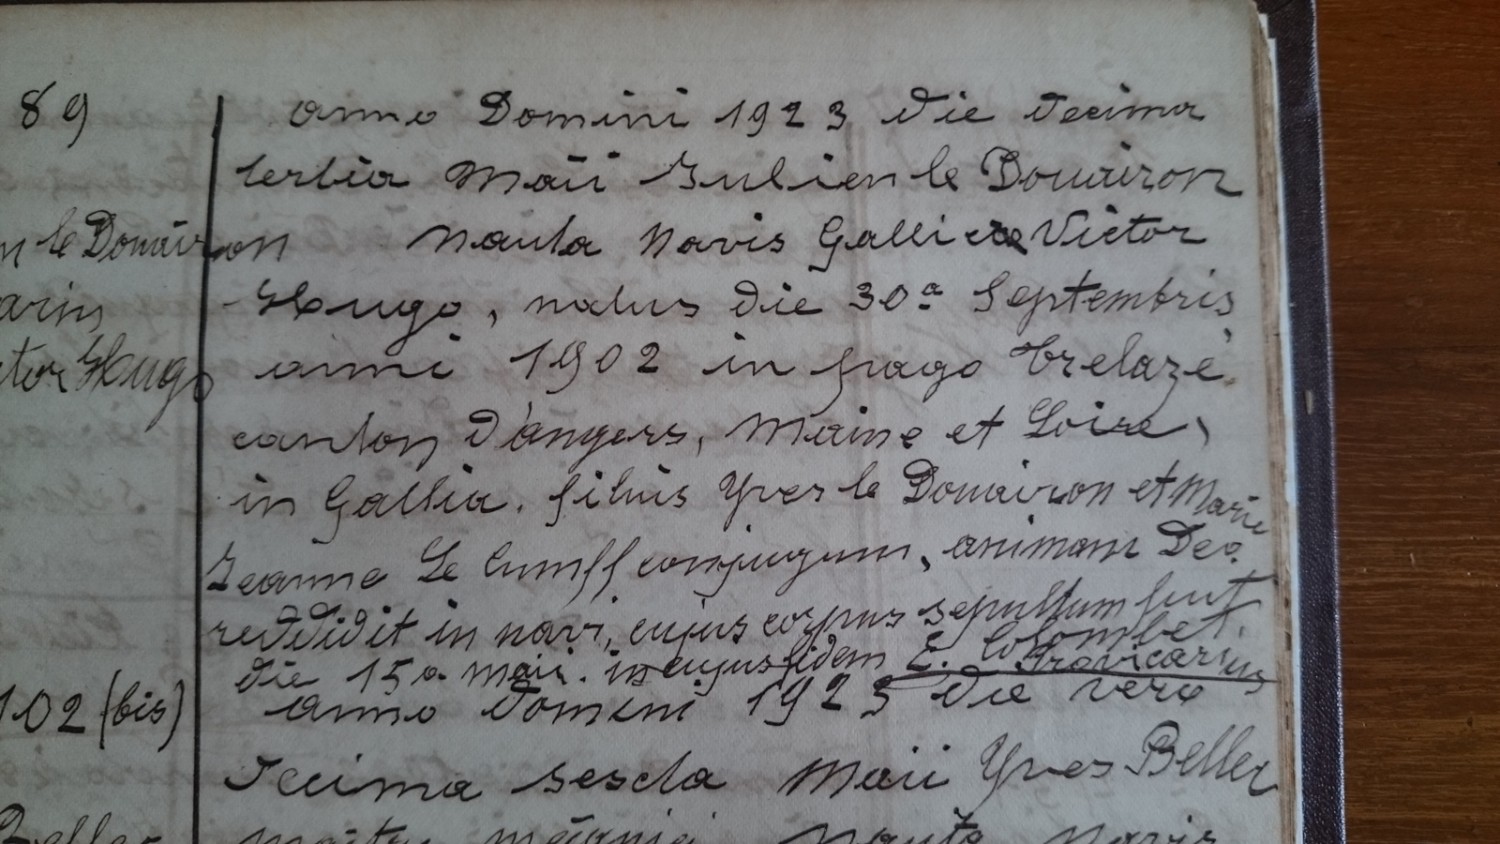 89
anno Domini 1923 die decima
tertia Maii Julien le Douairon
n le Douairon
nauta navis Gallicæ Victor
arin
Hugo, natus die 30ª Septembris
ctor Hugo
anni 1902 in pago Trelazé
canton d'angers, Maine et Loire,
in Gallia. filius Yves le Douairon et Marie
Jeanne Le Cunff conjugum, animam Deo
reddidit in navi, cujus corpus sepultum fuit
die 15a maii. in cujus fidem E. Colombet.
Provicarius
102 (bis)
anno Domini 1923 die vero
decima sexta Maii Yves Beller
Beller
nauta navis